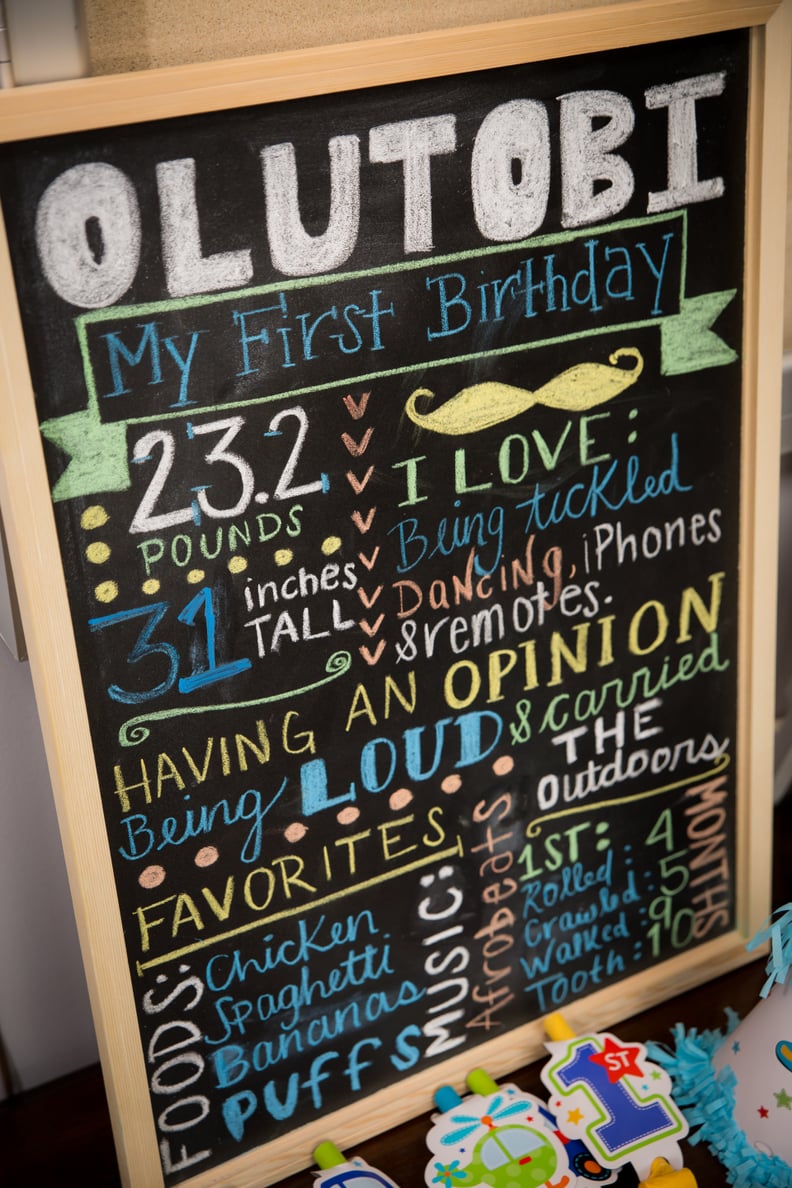 OLUTOBI
My First Birthday
23.2
POUNDS
31 inches
TALL
I LOVE:
Being tickled
Dancing, iPhones
& remotes.
HAVING AN OPINION
Being LOUD & carried
THE
Outdoors
FAVORITES
FOODS:
Chicken
Spaghetti
Bananas
PUFFS
MUSIC:
Afrobeats
1ST:
MONTHS
Rolled: 4
Crawled: 5
Walked: 9
Tooth: 10
1ST